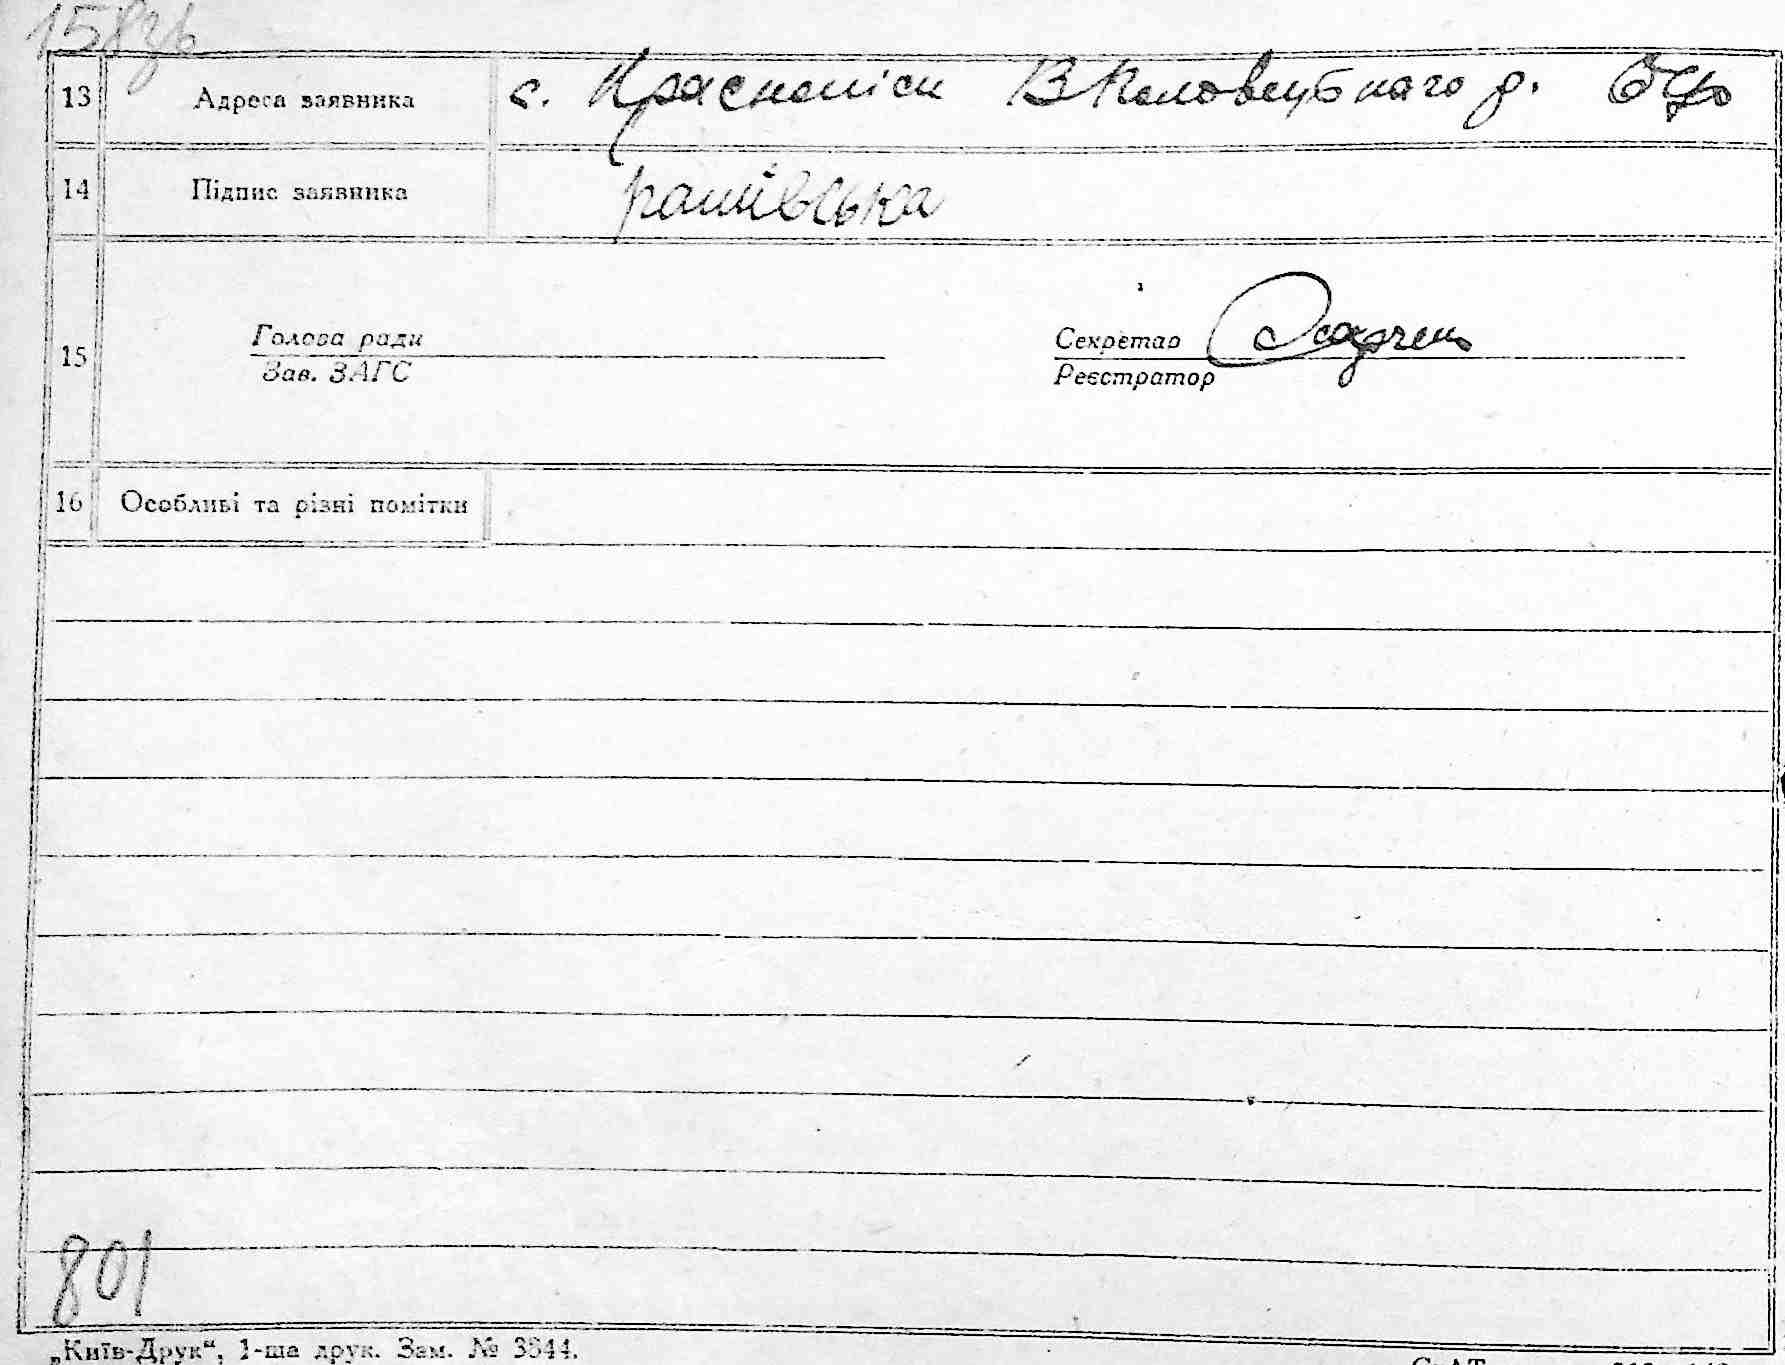 158зв
13 Адреса заявника с.
14 Підпис заявника рашівська
15 Голова ради Секретар
Зав. ЗАГС Реєстратор
16 Особливі та різні помітки
801
„Київ-Друк“, 1-ша друк. Зам. № 3844.